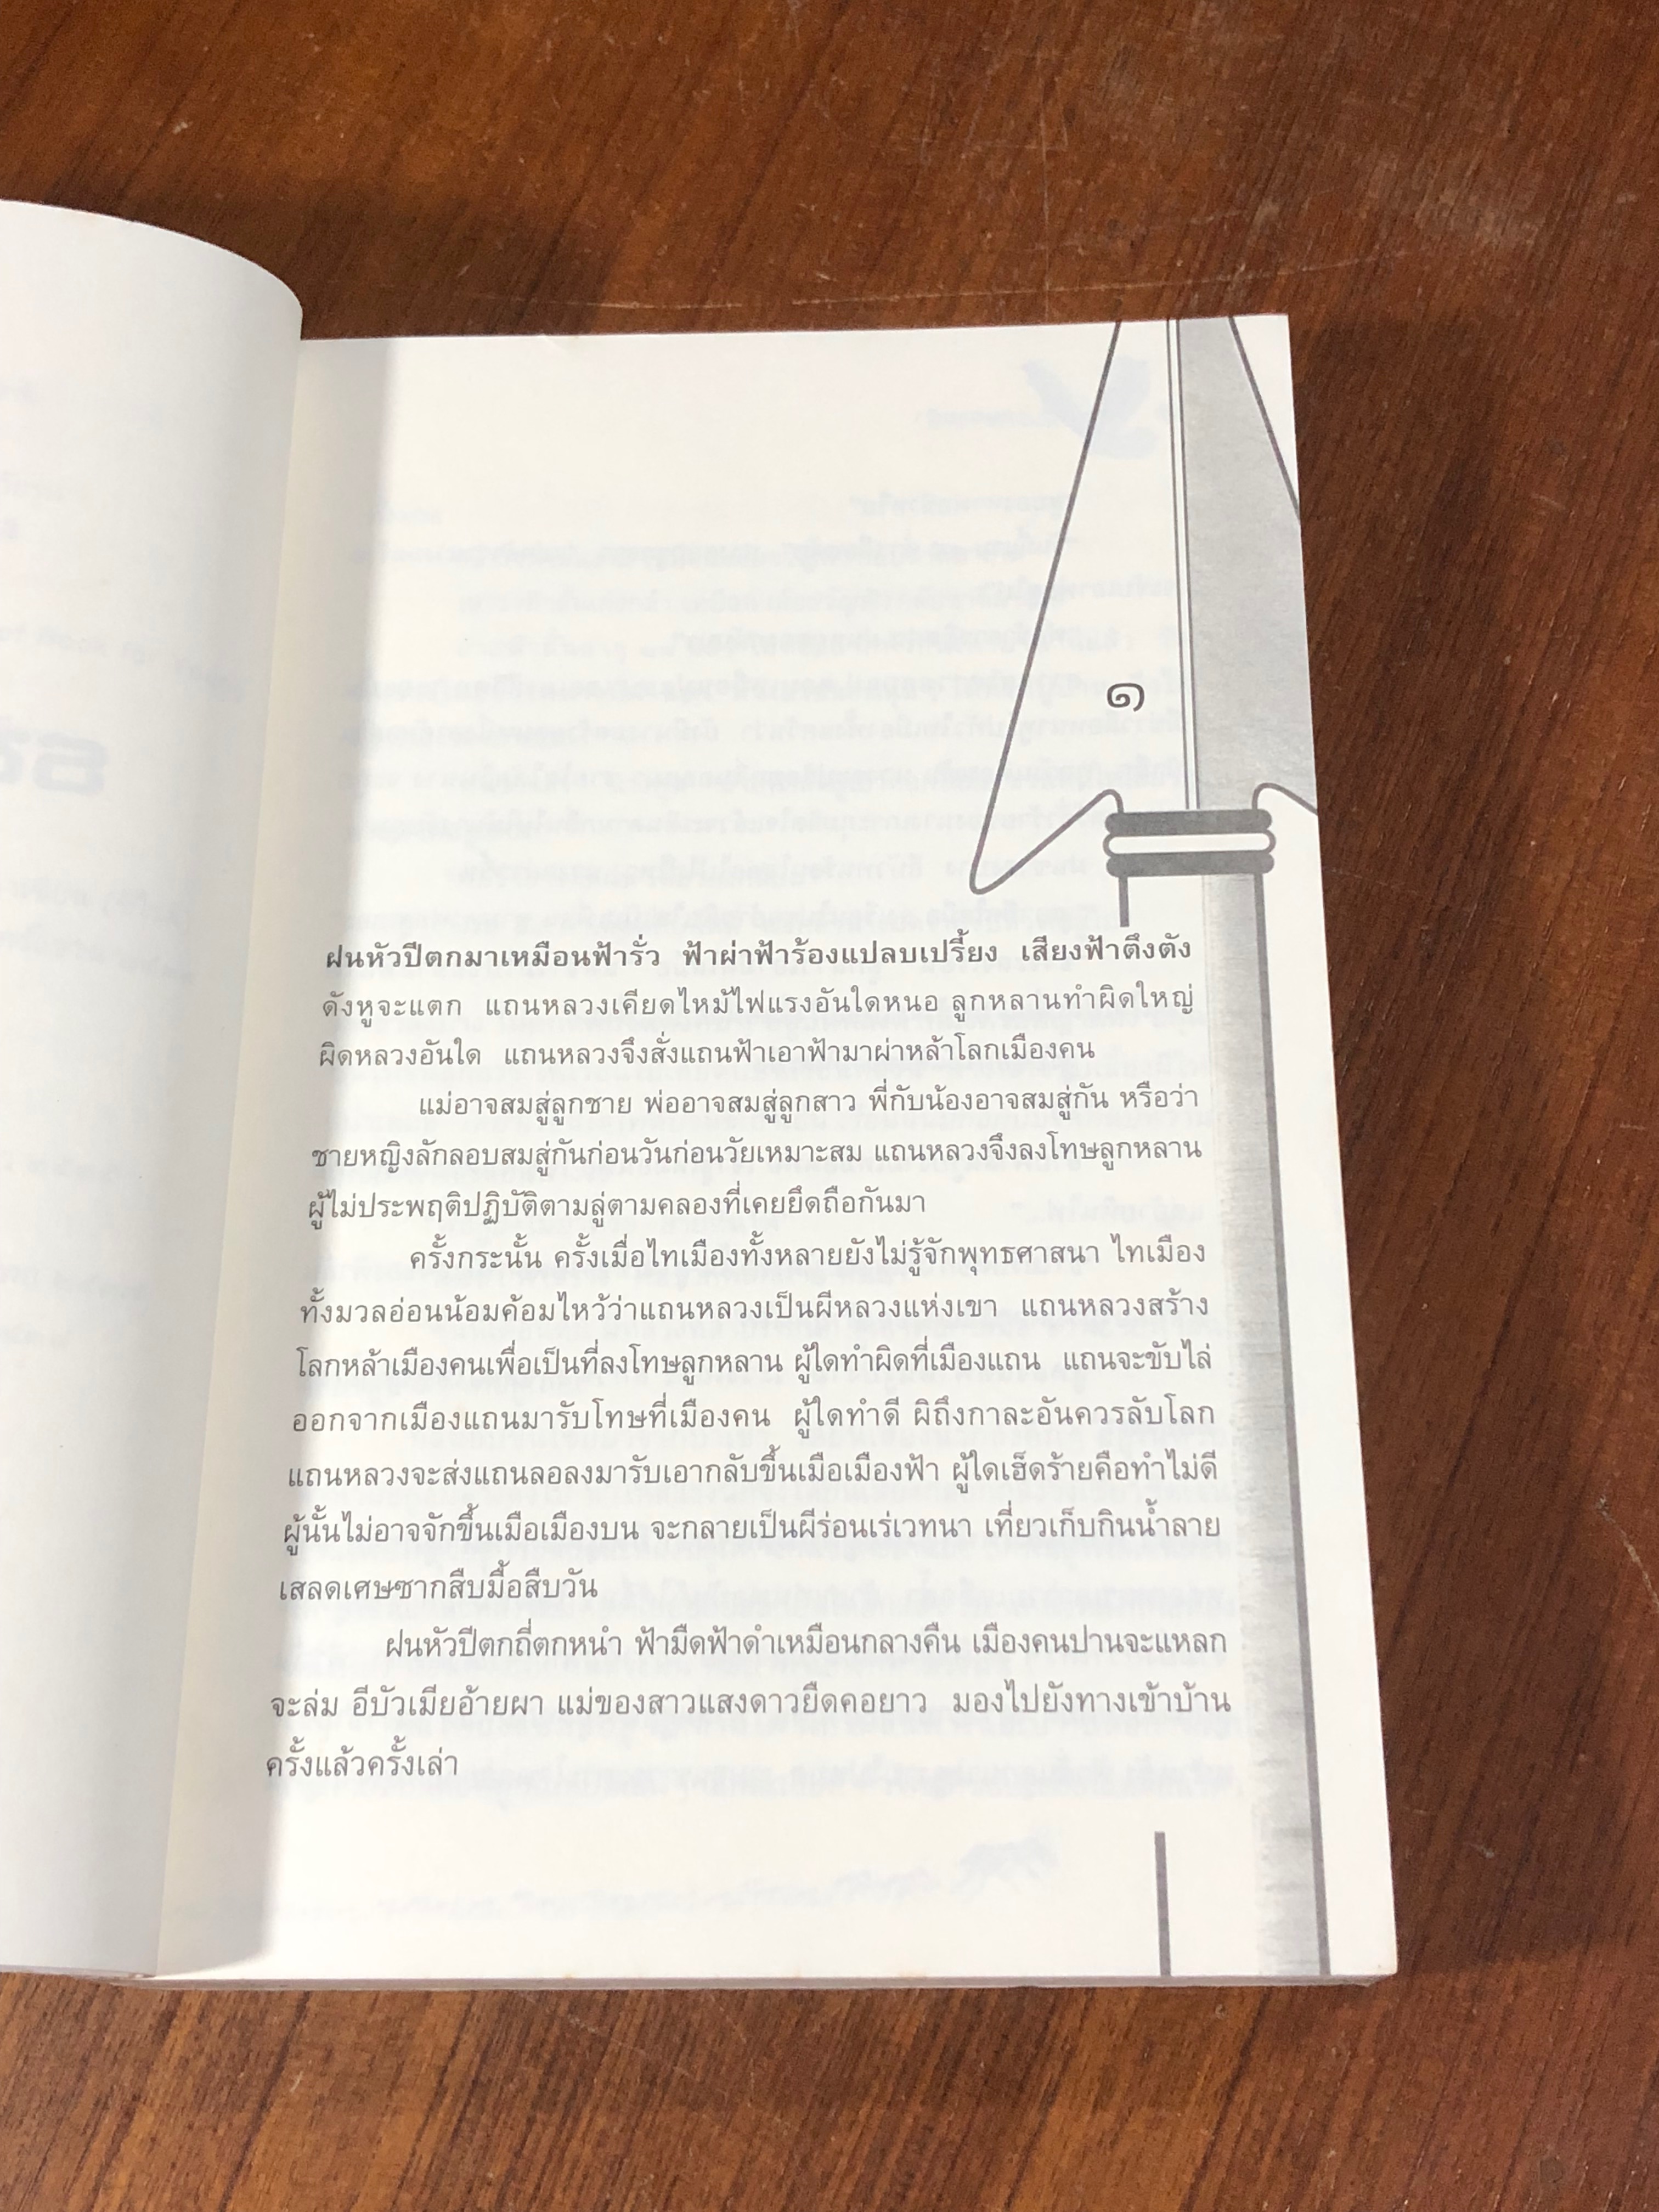 ๑
ฝนหัวปีตกมาเหมือนฟ้ารั่ว ฟ้าผ่าฟ้าร้องแปลบเปรี้ยง เสียงฟ้าตึงตัง
ดังหูจะแตก แถนหลวงเคียดไหม้ไฟแรงอันใดหนอ ลูกหลานทำผิดใหญ่
ผิดหลวงอันใด แถนหลวงจึงสั่งแถนฟ้าเอาฟ้ามาผ่าหล้าโลกเมืองคน
แม่อาจสมสู่ลูกชาย พ่ออาจสมสู่ลูกสาว พี่กับน้องอาจสมสู่กัน หรือว่า
ชายหญิงลักลอบสมสู่กันก่อนวันก่อนวัยเหมาะสม แถนหลวงจึงลงโทษลูกหลาน
ผู้ไม่ประพฤติปฏิบัติตามลู่ตามคลองที่เคยยึดถือกันมา
ครั้งกระนั้น ครั้งเมื่อไทเมืองทั้งหลายยังไม่รู้จักพุทธศาสนา ไทเมือง
ทั้งมวลอ่อนน้อมค้อมไหว้ว่าแถนหลวงเป็นผีหลวงแห่งเขา แถนหลวงสร้าง
โลกหล้าเมืองคนเพื่อเป็นที่ลงโทษลูกหลาน ผู้ใดทำผิดที่เมืองแถน แถนจะขับไล่
ออกจากเมืองแถนมารับโทษที่เมืองคน ผู้ใดทำดี ผิถึงกาละอันควรลับโลก
แถนหลวงจะส่งแถนลอลงมารับเอากลับขึ้นเมือเมืองฟ้า ผู้ใดเฮ็ดร้ายคือทำไม่ดี
ผู้นั้นไม่อาจจักขึ้นเมือเมืองบน จะกลายเป็นผีร่อนเร่เวทนา เที่ยวเก็บกินน้ำลาย
เสลดเศษซากสืบมื้อสืบวัน
ฝนหัวปีตกถี่ตกหนำ ฟ้ามืดฟ้าดำเหมือนกลางคืน เมืองคนปานจะแหลก
จะล่ม อีบัวเมียอ้ายผา แม่ของสาวแสงดาวยืดคอยาว มองไปยังทางเข้าบ้าน
ครั้งแล้วครั้งเล่า